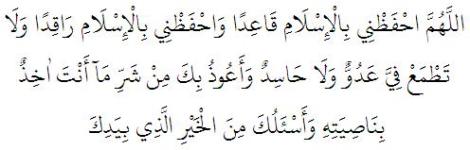 اللَّهُمَّ احْفَظْنِي بِالْإِسْلَامِ قَاعِدًا وَاحْفَظْنِي بِالْإِسْلَامِ رَاقِدًا وَلَا
تَطْمَعْ فِيَّ عَدُوٌّ وَلَا حَاسِدٌ وَأَعُوذُ بِكَ مِنْ شَرِّ مَآ أَنْتَ اٰخِذٌ
بِنَاصِيَتِهِ وَأَسْئَلُكَ مِنَ الْخَيْرِ الَّذِي بِيَدِكَ